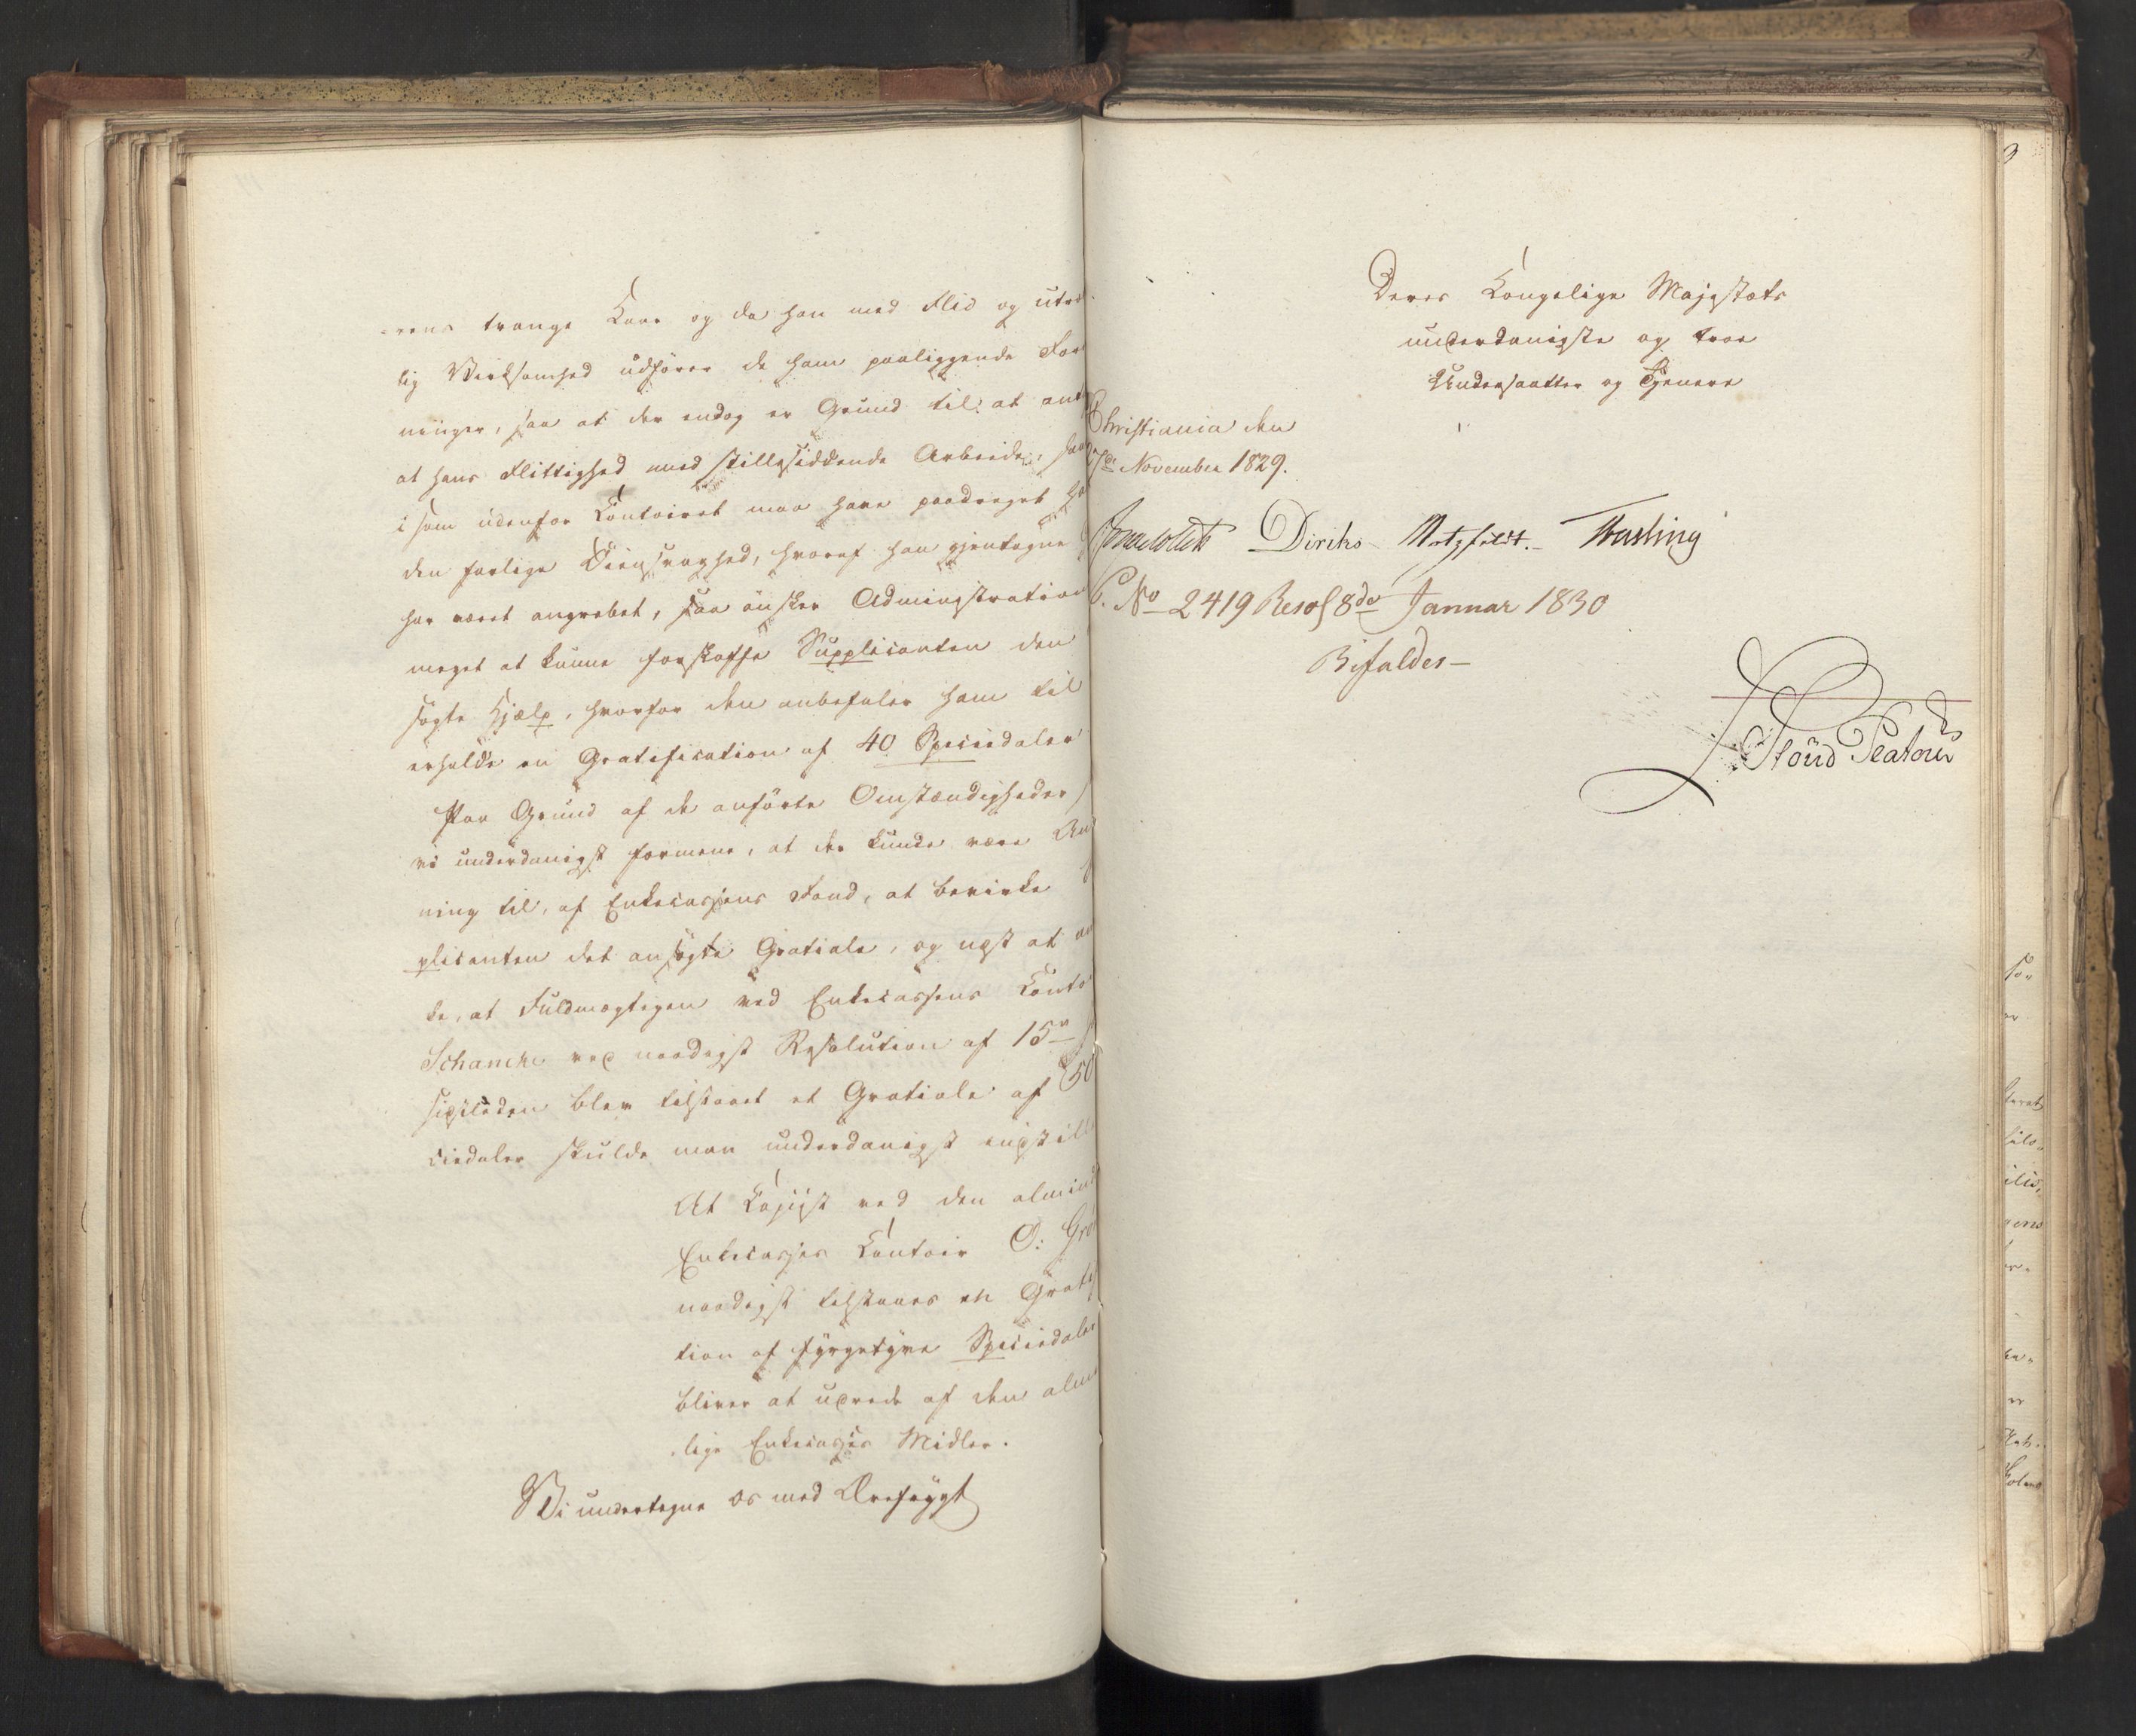 -rens trange Kaar og da han med Flid og utræt
lig Virksomhed udfører de ham paaliggende For
ninger, saa at der endog er Grund til at ant
at hans Flittighed med stillesiddende Arbeide, saa
i som udenfor Contoiret maa have paadraget ha
den farlige Øiensvaghed, hvoraf han gjentagne
har været angrebet, saa ønsker Administration
meget at kunne forskaffe Supplicanten den
søgte Hjælp, hvorfor den anbefaler ham til
erholde en Gratification af 40 Speciedaler
Paa Grund af de anførte Omstændigheder
vi underdanigst formene, at der kunde være An
ning til, af Enkecassens Fond, at bevirke
plicanten det ansøgte Gratiale, og næst at an
ke, at Fuldmægtigen ved Enkecassens Conto
Schancke ved naadigst Resolution af 15de
sidstleden blev tilstaaet et Gratiale af 50
ciedaler skulde man underdanigst indstille
At Copiist ved den almind
Enkecasses Contoir O: Grø
naadigst tilstaaes en Gratif
tion af fyrgetyve Speciedaler
bliver at udrede af den alm
lige Enkecasses Midler.
Vi undertegne os med Ærefrygt
Deres Kongelige Majestæts
underdanigste og troe
Undersaatter og Tjenere
Christiania den
7de November 1829.
Diriks Motzfeldt. Fasting
C. No 2419 Resol 8de Januar 1830
Bifaldes—